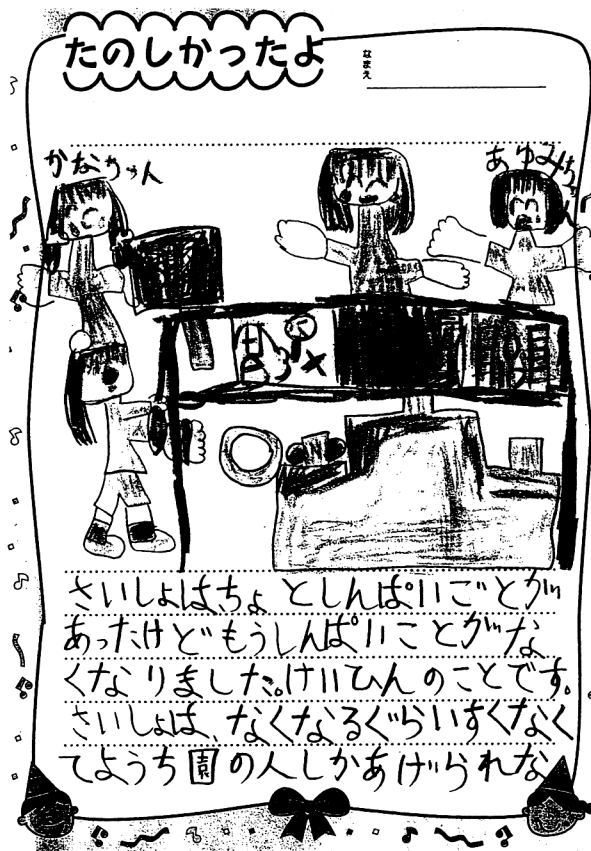 たのしかったよ
なまえ
かなちゃん
あゆみちゃん
さいしょは、ちょとしんぱいごとが
あったけどもうしんぱいことがな
くなりました。けいひんのことです。
さいしょは、なくなるぐらいすくなく
てようち園の人しかあげられな